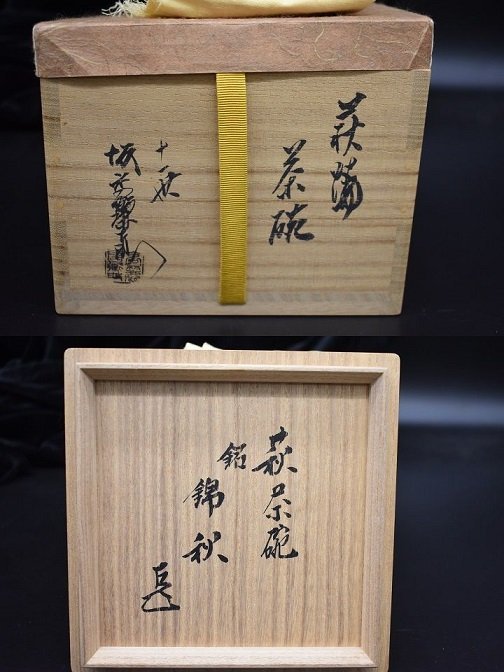 萩茶碗
十一世
坂高麗左衛門
萩茶碗
銘
錦秋